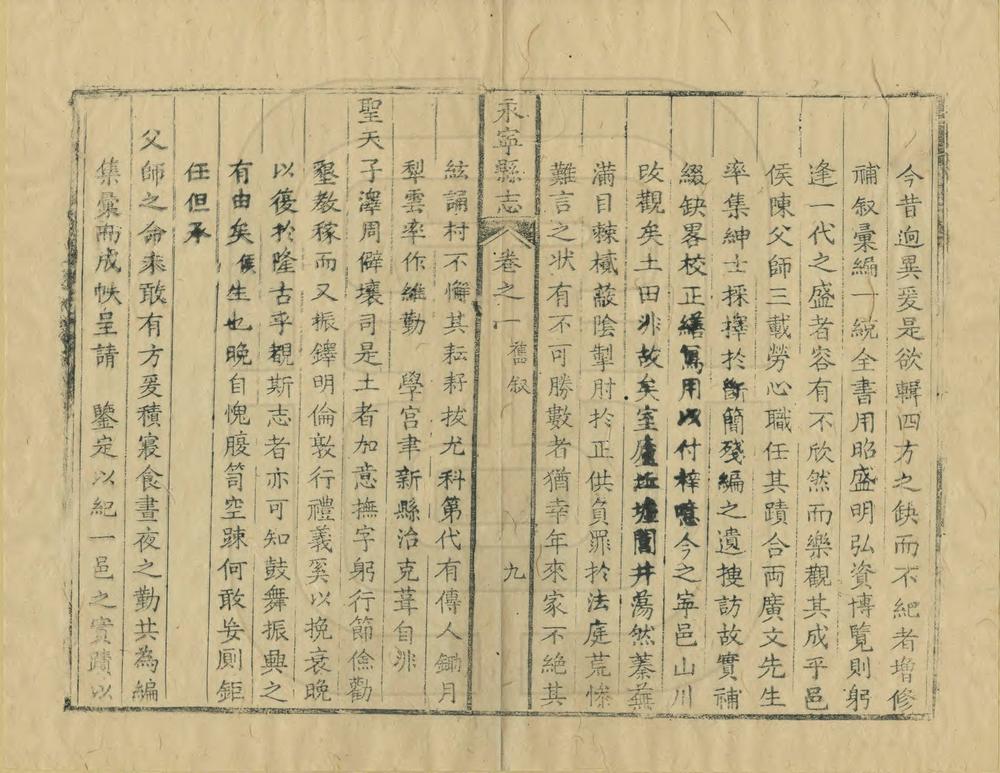 今昔逈異爰是欲輯四方之缺而不紀者增修
補叙彙編一統全書用昭盛明弘資博覽則躬
逢一代之盛者容有不欣然而樂觀其成乎邑
侯陳父師三載勞心職任其蹟合両廣文先生
率集紳士採擇於斷簡殘編之遺搜訪故實補
綴缺畧校正繕寫用以付梓噫今之寕邑山川
改觀矣土田非故矣室廬坵墟閭井蕩然蓁蕪
滿目棘棫蔽陰掣肘於正供負罪於法庭荒慘
難言之状有不可勝數者猶幸年來家不絶其
永寧縣志
卷之一
舊叙
九
絃誦村不懈其耘耔拔尤科第代有傳人鋤月
犁雲率作維勤　學宮聿新縣治克葺自非
聖天子澤周僻壤司是土者加意撫字躬行節儉勸
墾教稼而又振鐸明倫敦行禮義奚以挽衰晚
以復於隆古乎覩斯志者亦可知鼓舞振興之
有由矣侯生也晚自愧腹笥空踈何敢妄厠鉅
任但承
父師之命来敢有方爰積寢食晝夜之勤共為編
集彙而成帙呈請　鑒定以紀一邑之實蹟以